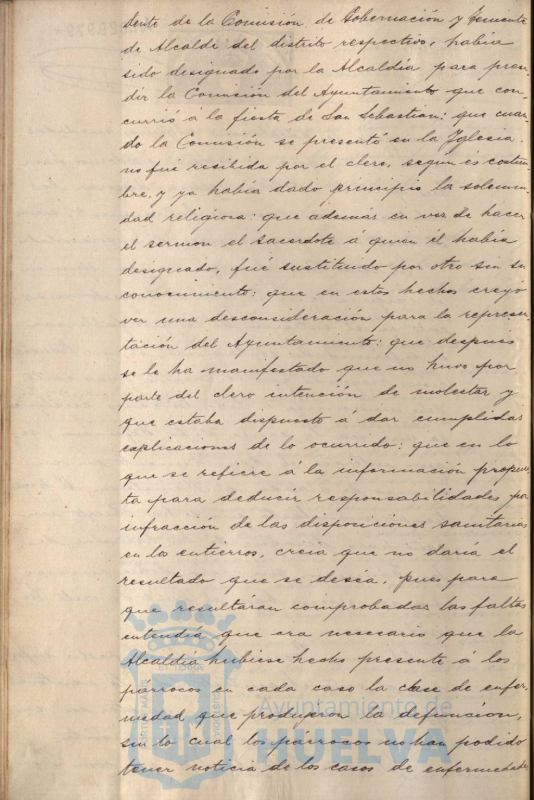 dente de la Comisión de Gobernación y Teniente
de Alcalde del distrito respectivo, habia
sido designado por la Alcaldía para presi-
dir la Comisión del Ayuntamiento que con-
currió á la fiesta de San Sebastian: que cuan-
do la Comisión se presentó en la Yglesia
no fué resibida por el clero, según es costum-
bre, y ya habia dado principio la solemni-
dad religiosa: que además en vez de hacer
el sermon el sacerdote á quien él habia
designado, fué sustituido por otro sin su
conocimiento: que en estos hechos creyó
ver una desconsideración para la represen-
tación del Ayuntamiento: que después
se le ha manifestado que no huvo por
parte del clero intención de molestar y
que estaba dispuesto á dar cumplidas
esplicaciones de lo ocurrido: que en lo
que se refiere á la información propues-
ta para deducir responsabilidades por
infracción de las disposiciones sanitarias
en los entierros, creia que no daría el
resultado que se deséa, pues para
que resultáran comprobadas las faltas
entendiá que era nesesario que la
Alcaldía hubiese hecho presente á los
párrocos en cada caso la clase de enfer-
medad que produjeron la defuncion,
sin lo cual los parrocos no han podido
tener noticia de los casos de enfermedades
Ayuntamiento de
HUELVA